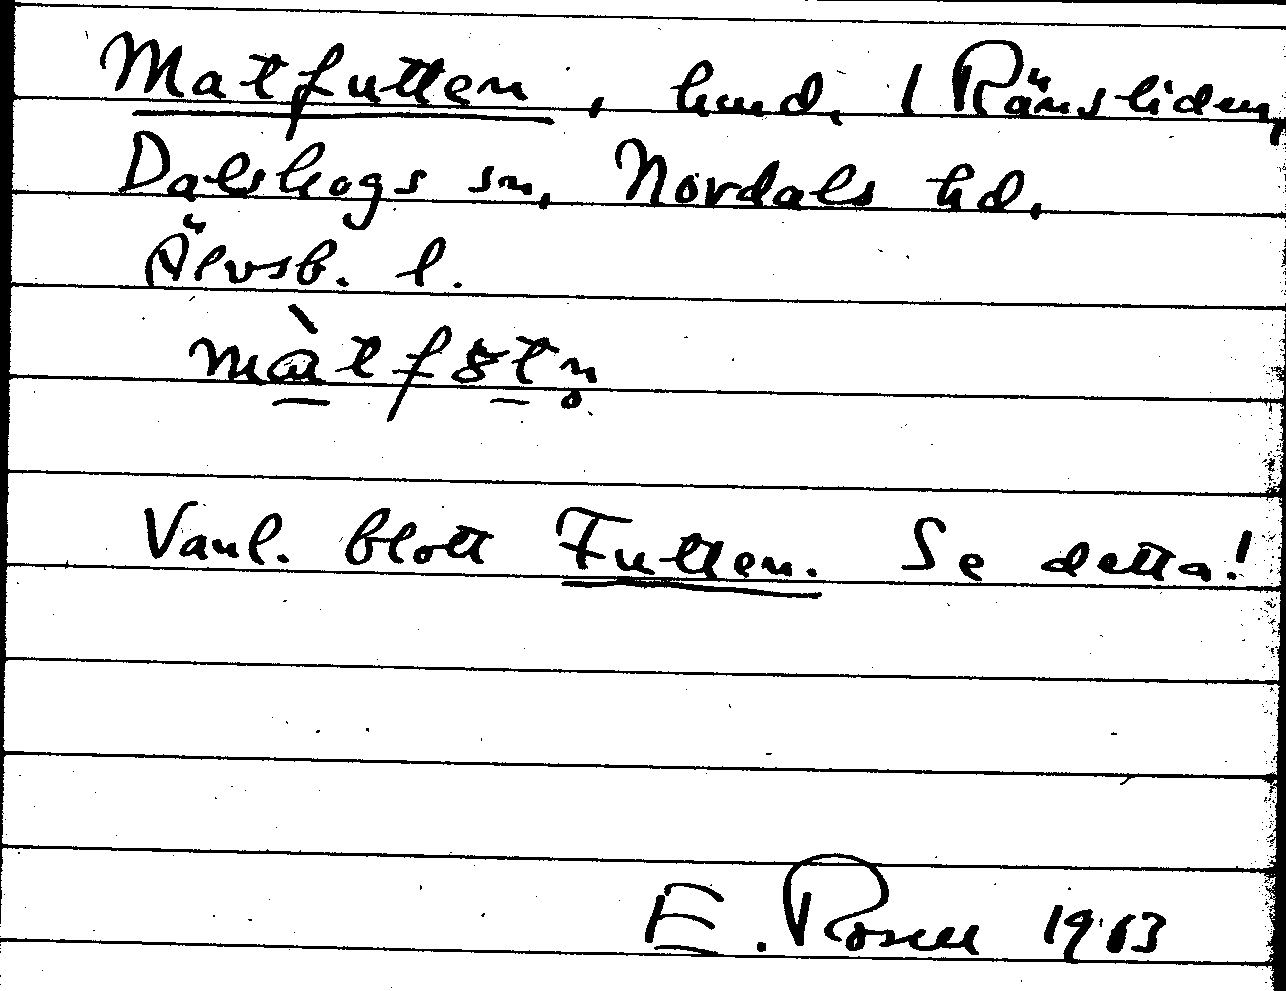 Matfutten, hund, 1 Ränsliden,
Dalskogs sn, Nordals hd,
Älvsb. l.
Vanl. blott Futten. Se detta!
E. Rosell 1963